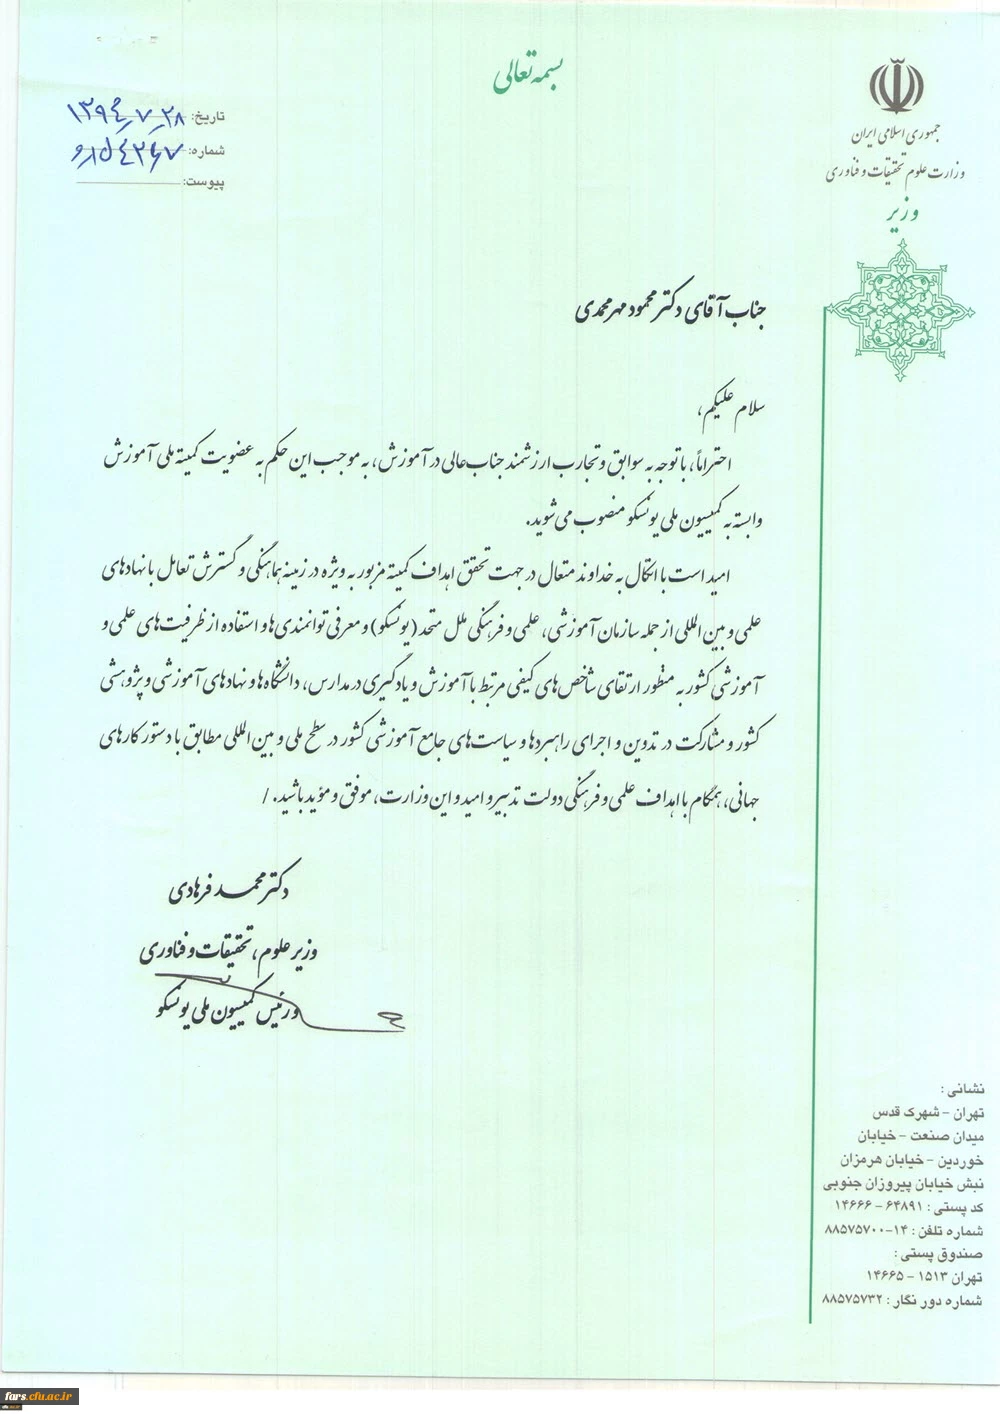 بسمه تعالی
جمهوری اسلامی ایران
وزارت علوم تحقیقات و فناوری
وزیر
تاریخ: ۱۳۹۴٫۷٫۲۸
شماره:
پیوست:
جناب آقای دکتر محمود مهرمحمدی
سلام علیکم،
احتراماً، با توجه به سوابق و تجارب ارزشمند جناب عالی در آموزش، به موجب این حکم به عضویت کمیته ملی آموزش
وابسته به کمیسیون ملی یونسکو منصوب می شوید.
امید است با اتکال به خداوند متعال در جهت تحقق اهداف کمیته مزبور به ویژه در زمینه هماهنگی و گسترش تعامل با نهادهای
علمی و بین المللی از جمله سازمان آموزشی، علمی و فرهنگی ملل متحد (یونسکو) و معرفی توانمندی ها و استفاده از ظرفیت های علمی و
آموزشی کشور به منظور ارتقای شاخص های کیفی مرتبط با آموزش و یادگیری در مدارس، دانشگاه ها و نهادهای آموزشی و پژوهشی
کشور و مشارکت در تدوین و اجرای راهبردها و سیاست های جامع آموزشی کشور در سطح ملی و بین المللی مطابق با دستور کارهای
جهانی، همگام با اهداف علمی و فرهنگی دولت تدبیر و امید و این وزارت، موفق و مؤید باشید. /
دکتر محمد فرهادی
وزیر علوم، تحقیقات و فناوری
و رئیس کمیسیون ملی یونسکو
نشانی :
تهران - شهرک قدس
میدان صنعت - خیابان
خوردین - خیابان هرمزان
نبش خیابان پیروزان جنوبی
کد پستی : ۶۴۸۹۱ - ۱۴۶۶۶
شماره تلفن : ۱۴-۸۸۵۷۵۷۰۰
صندوق پستی :
تهران ۱۵۱۳ - ۱۴۶۶۵
شماره دور نگار : ۸۸۵۷۵۷۳۲
fars.cfu.ac.ir